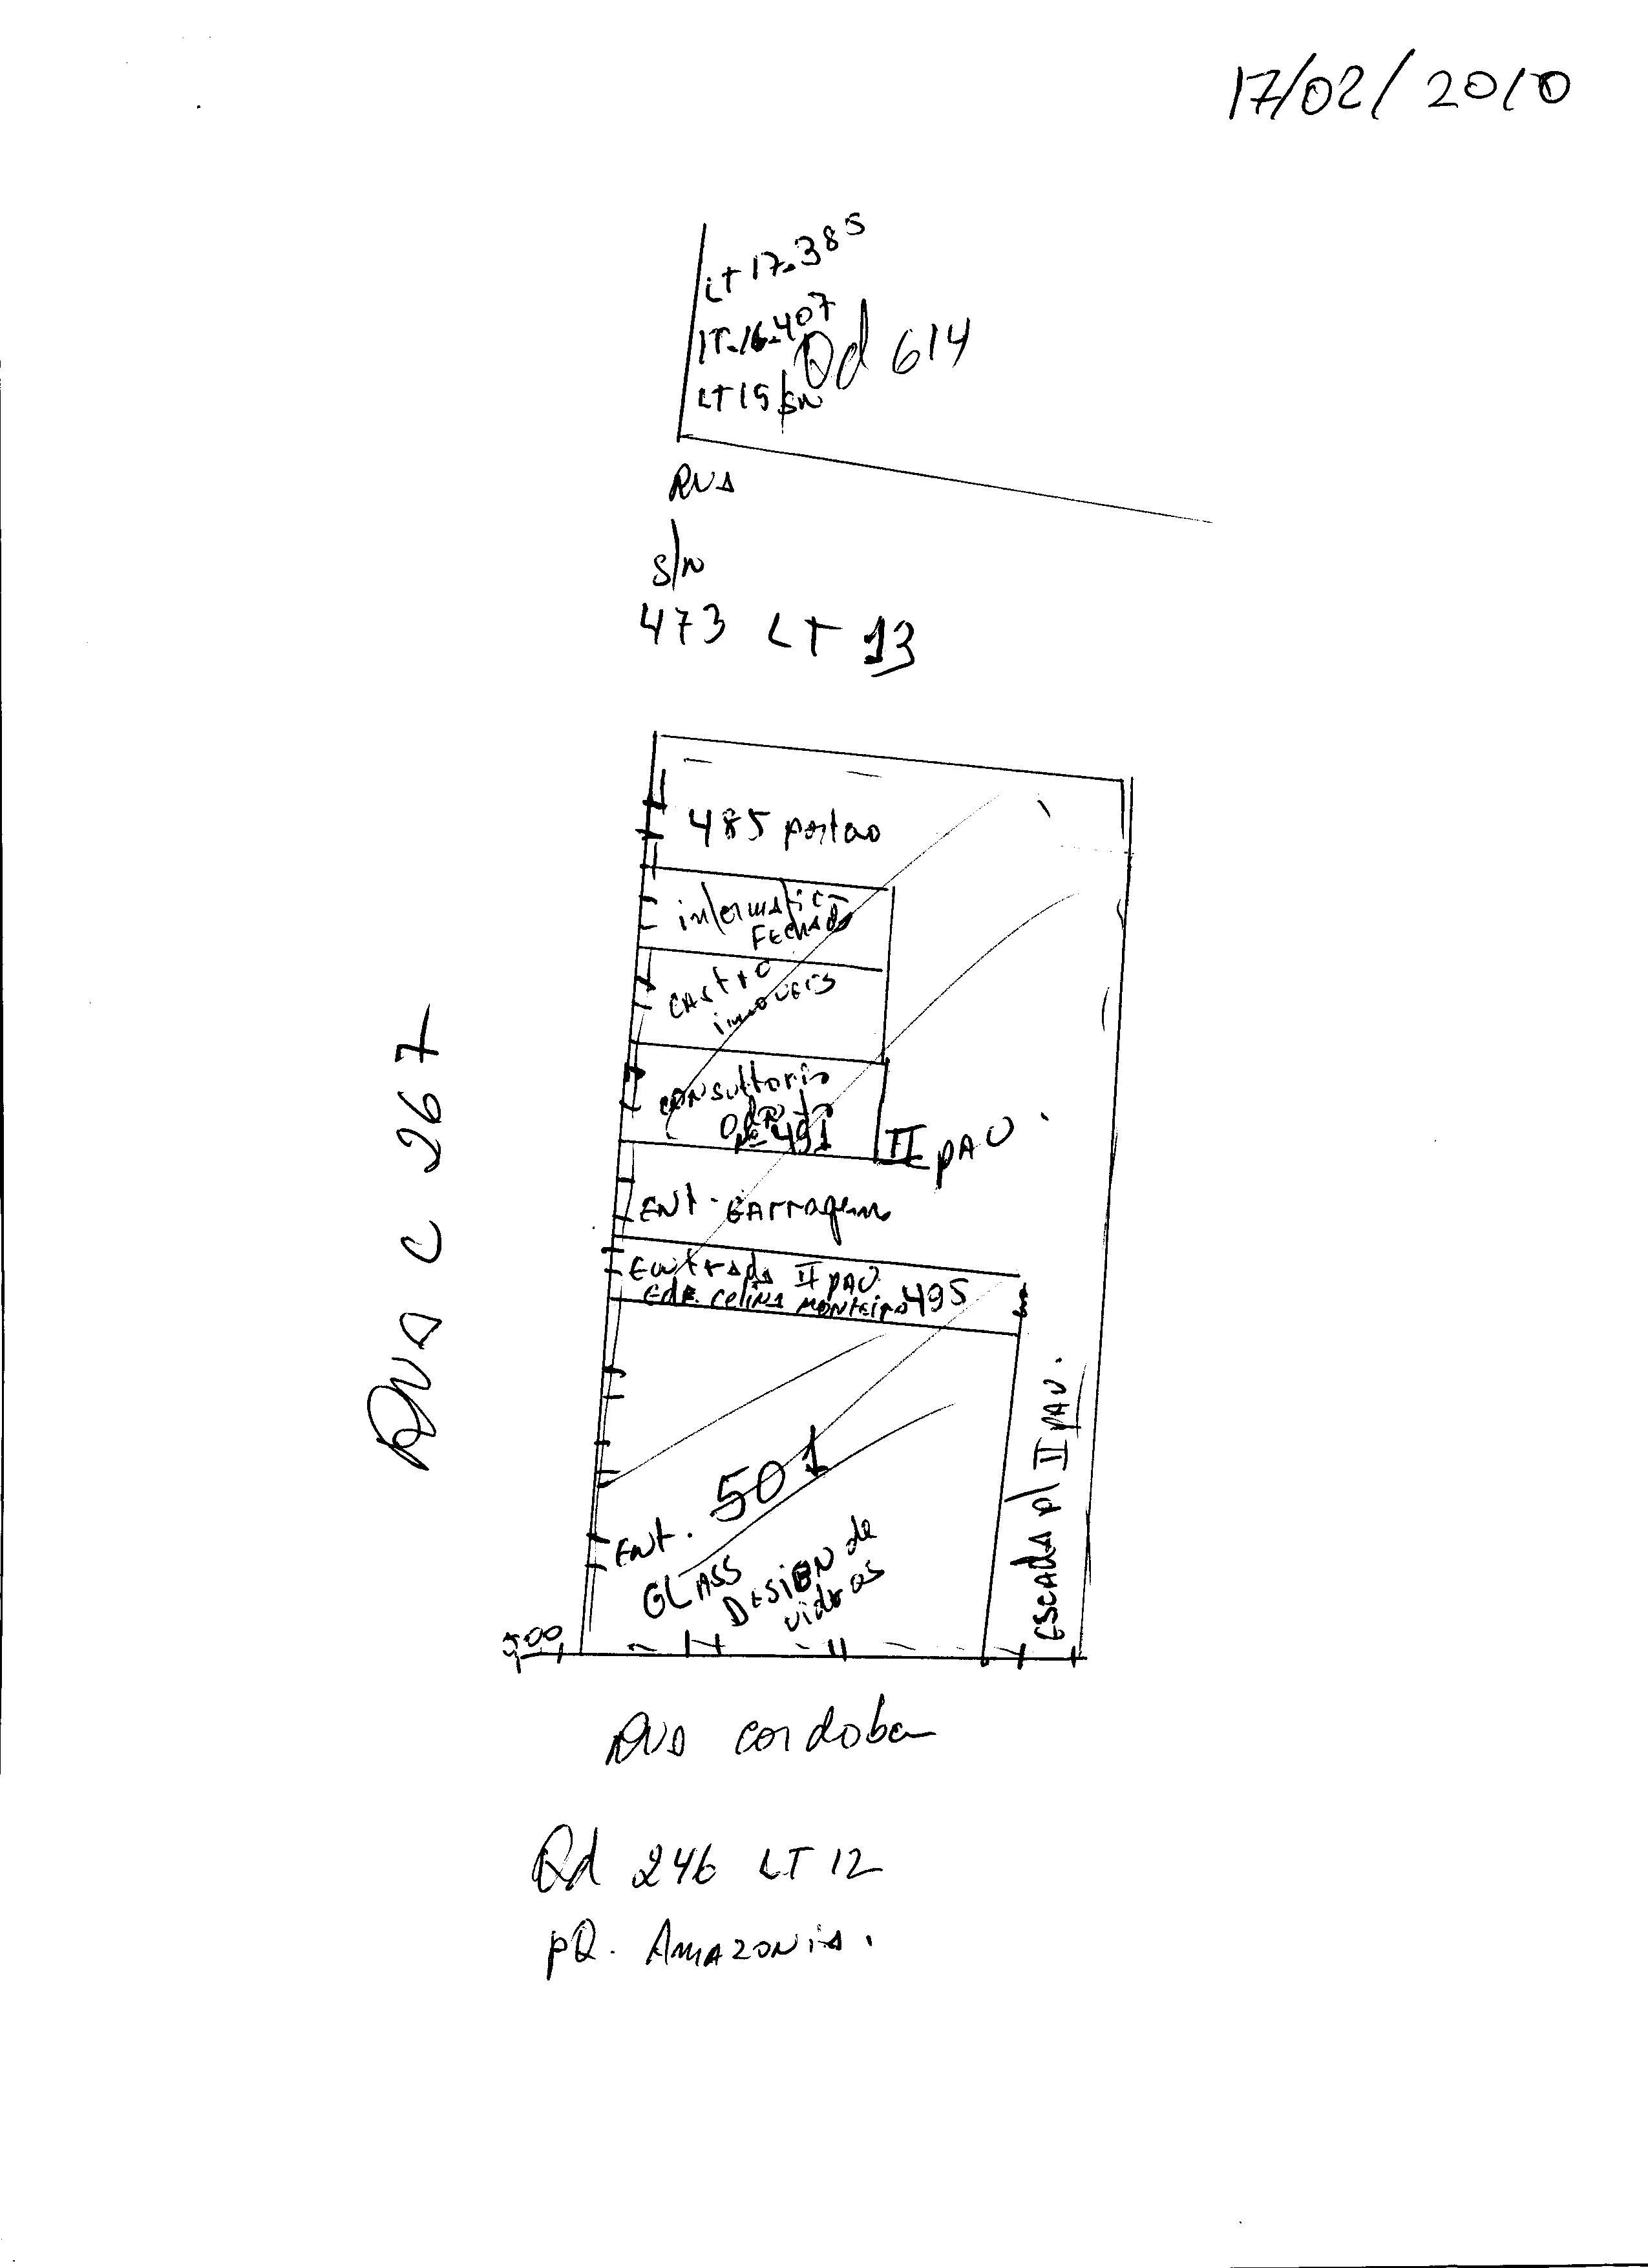 17/02/2010
LT 17.385
LT-16.407
Qd 614
LT 15 s/n
RUA
s/n
473 LT 13
485 portao
informatic
FECHADO
CASTRO
imoveis
consultorio
Nº 491
II PAV.
ENT. GArragem
Entrada II PAV.
Edf. Celina Monteiro 495
RUA C 267
ENT. 501
GLASS
DESIGN de
vidros
ESCADA p/ II PAV.
5.00
RUA cordoba
Qd 246 LT 12
PQ. AMAZONIA.